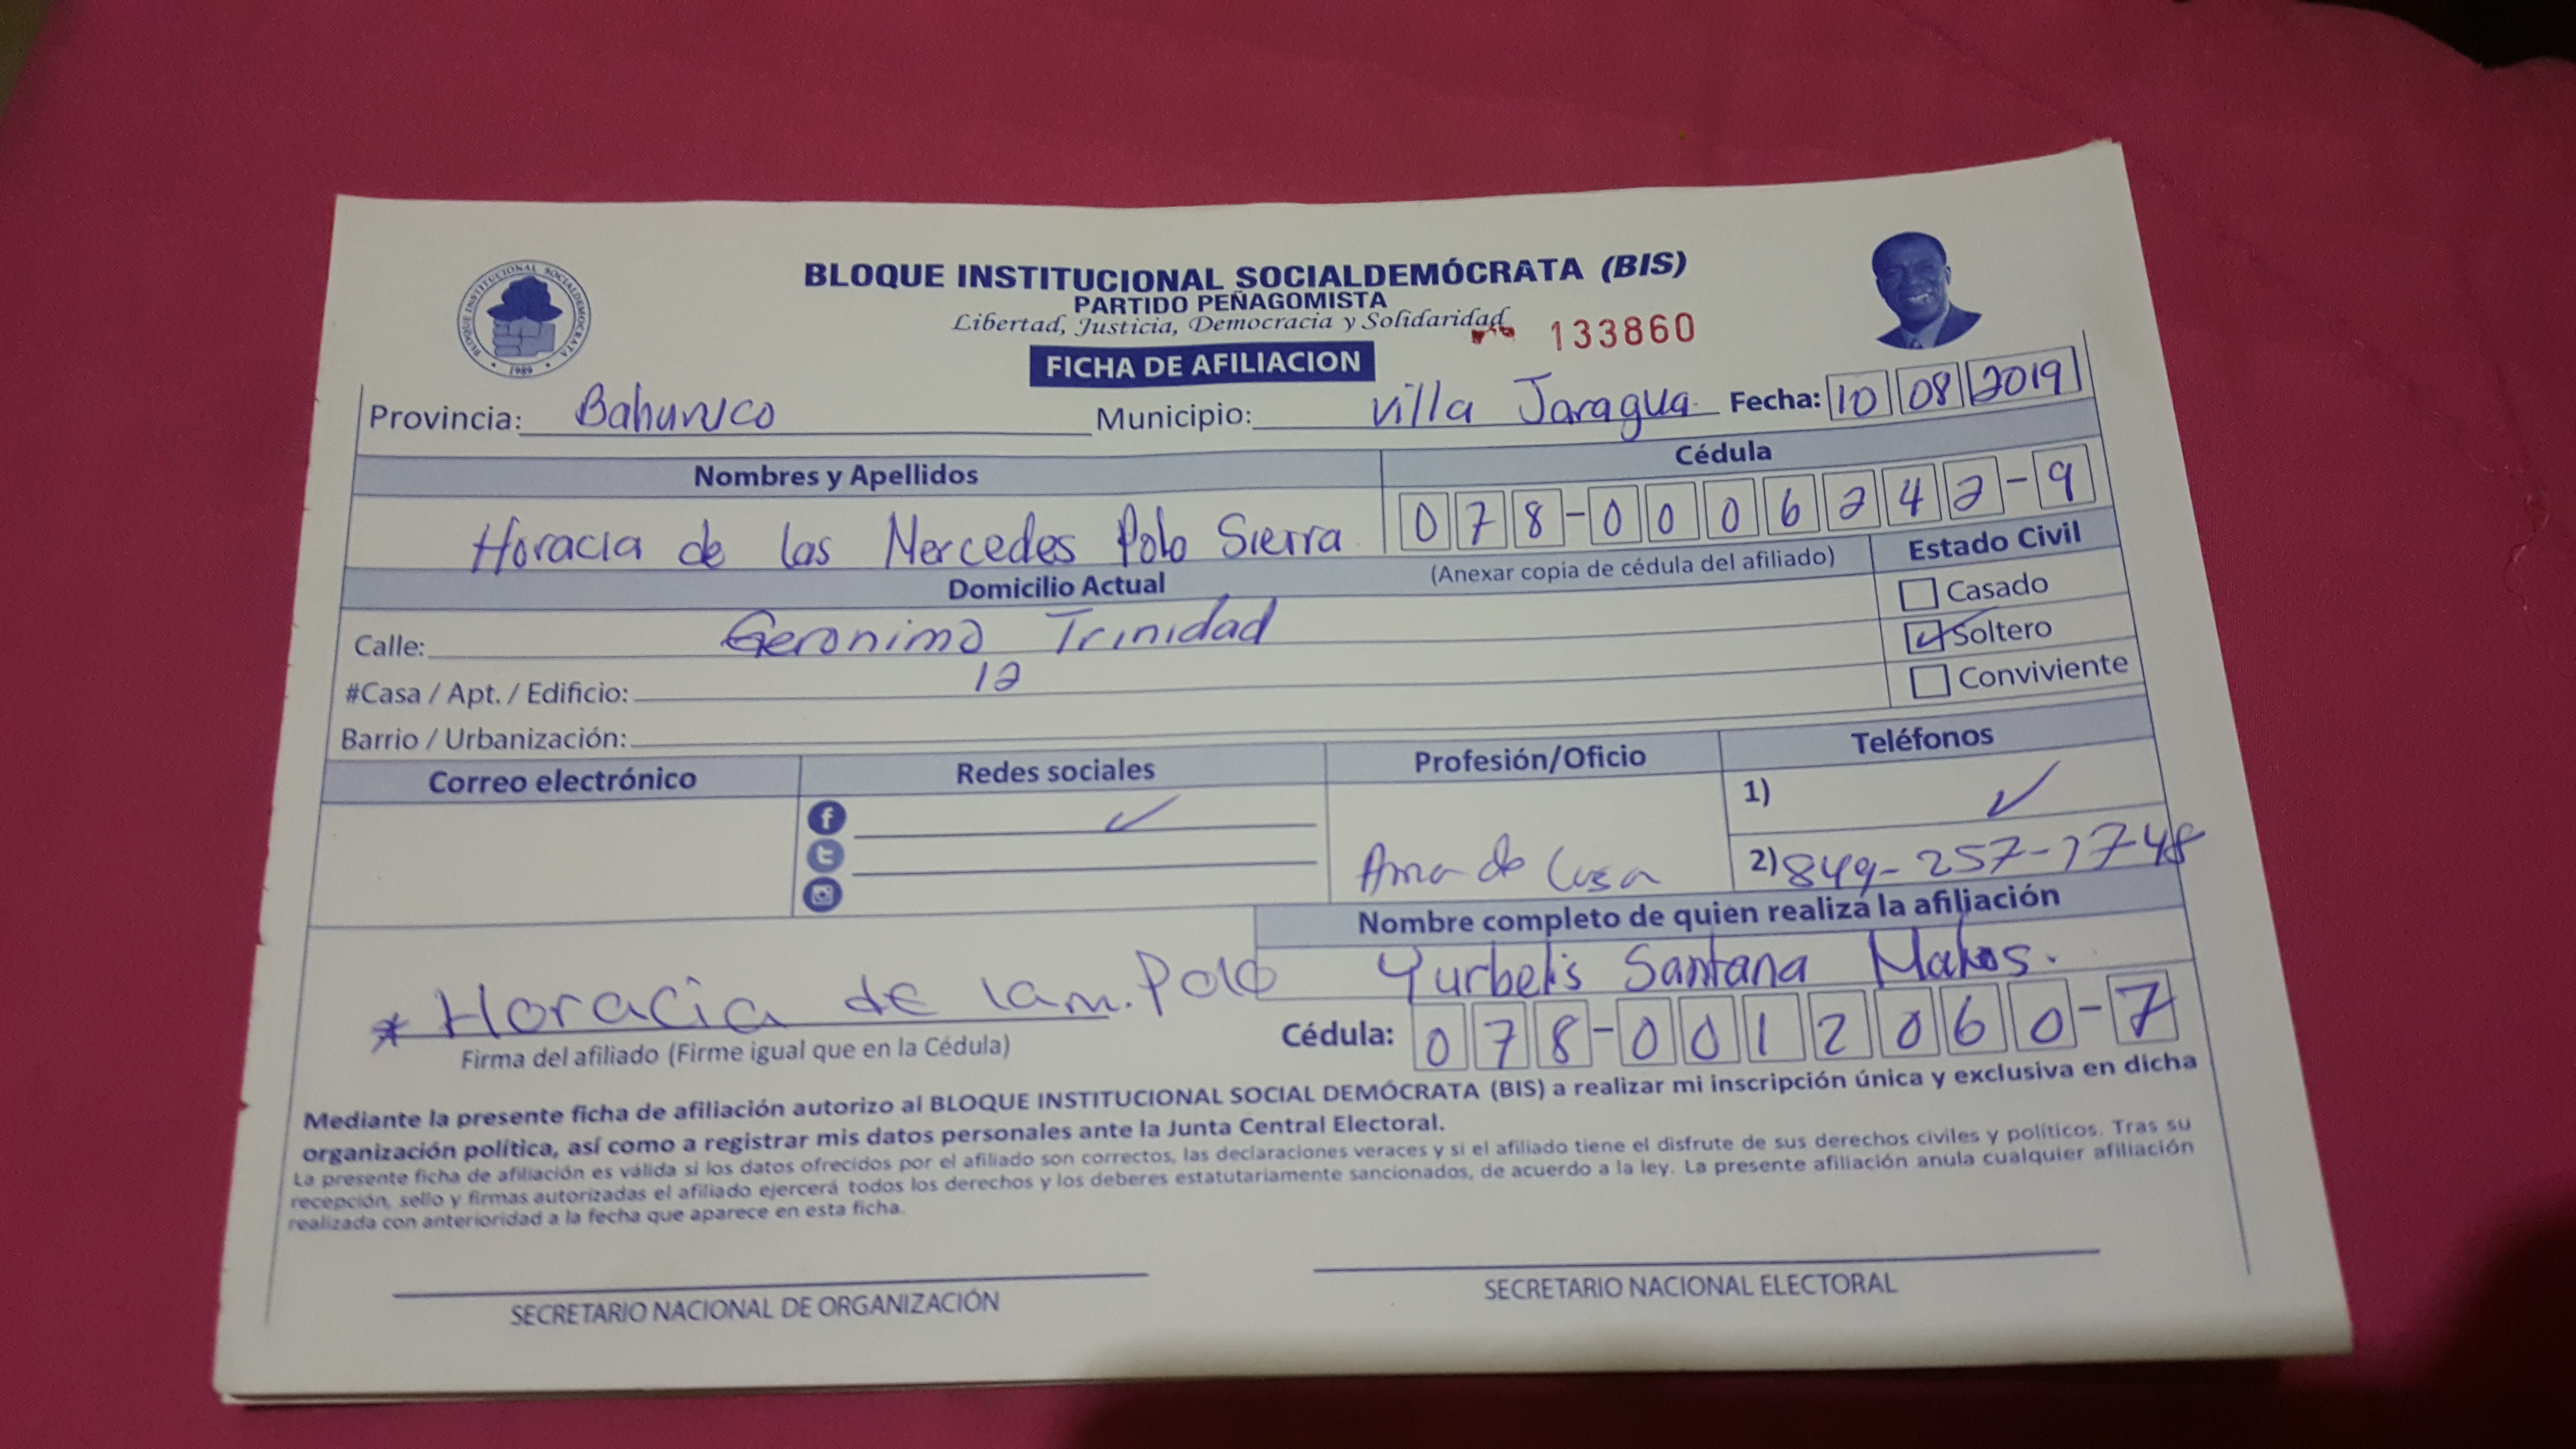 BLOQUE INSTITUCIONAL SOCIALDEMÓCRATA (BIS)
PARTIDO PEÑAGOMISTA
Libertad, Justicia, Democracia y Solidaridad
133860
BLOQUE INSTITUCIONAL SOCIALDEMOCRATA
1989
FICHA DE AFILIACION
Provincia: Bahuruco Municipio: Villa Jaragua Fecha: 10 08 2019
Nombres y Apellidos Cédula
Horacia de las Mercedes Polo Sierra 078-0006242-9
Domicilio Actual (Anexar copia de cédula del afiliado) Estado Civil
Casado
Calle: Geronimo Trinidad Soltero
#Casa / Apt. / Edificio: 12 Conviviente
Barrio / Urbanización:
Correo electrónico Redes sociales Profesión/Oficio Teléfonos
1)
Ama de Casa 2) 849-257-1748
Nombre completo de quien realiza la afiliación
Horacia de lam. Polo Yurbelis Santana Matos.
Firma del afiliado (Firme igual que en la Cédula) Cédula: 078-0012060-7
Mediante la presente ficha de afiliación autorizo al BLOQUE INSTITUCIONAL SOCIAL DEMÓCRATA (BIS) a realizar mi inscripción única y exclusiva en dicha
organización política, así como a registrar mis datos personales ante la Junta Central Electoral.
La presente ficha de afiliación es válida si los datos ofrecidos por el afiliado son correctos, las declaraciones veraces y si el afiliado tiene el disfrute de sus derechos civiles y políticos. Tras su
recepción, sello y firmas autorizadas el afiliado ejercerá todos los derechos y los deberes estatutariamente sancionados, de acuerdo a la ley. La presente afiliación anula cualquier afiliación
realizada con anterioridad a la fecha que aparece en esta ficha.
SECRETARIO NACIONAL DE ORGANIZACIÓN SECRETARIO NACIONAL ELECTORAL